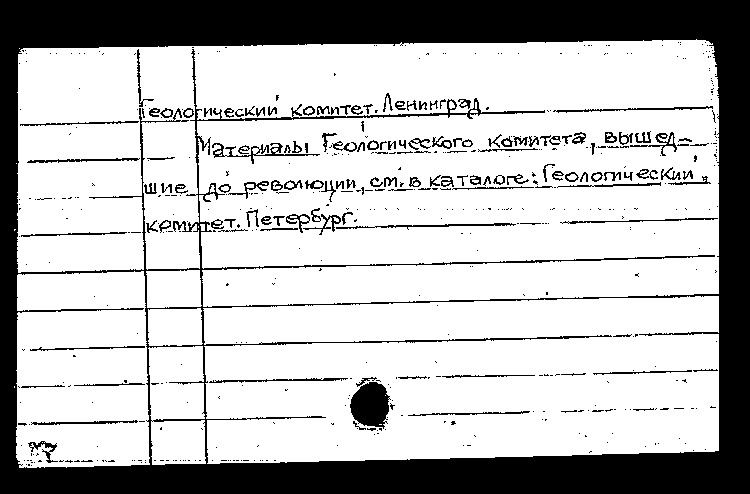 Геологический комитет. Ленинград.
Материалы Геологического комитета, вышед-
шие до революции, см. в каталоге: Геологический
комитет. Петербург.